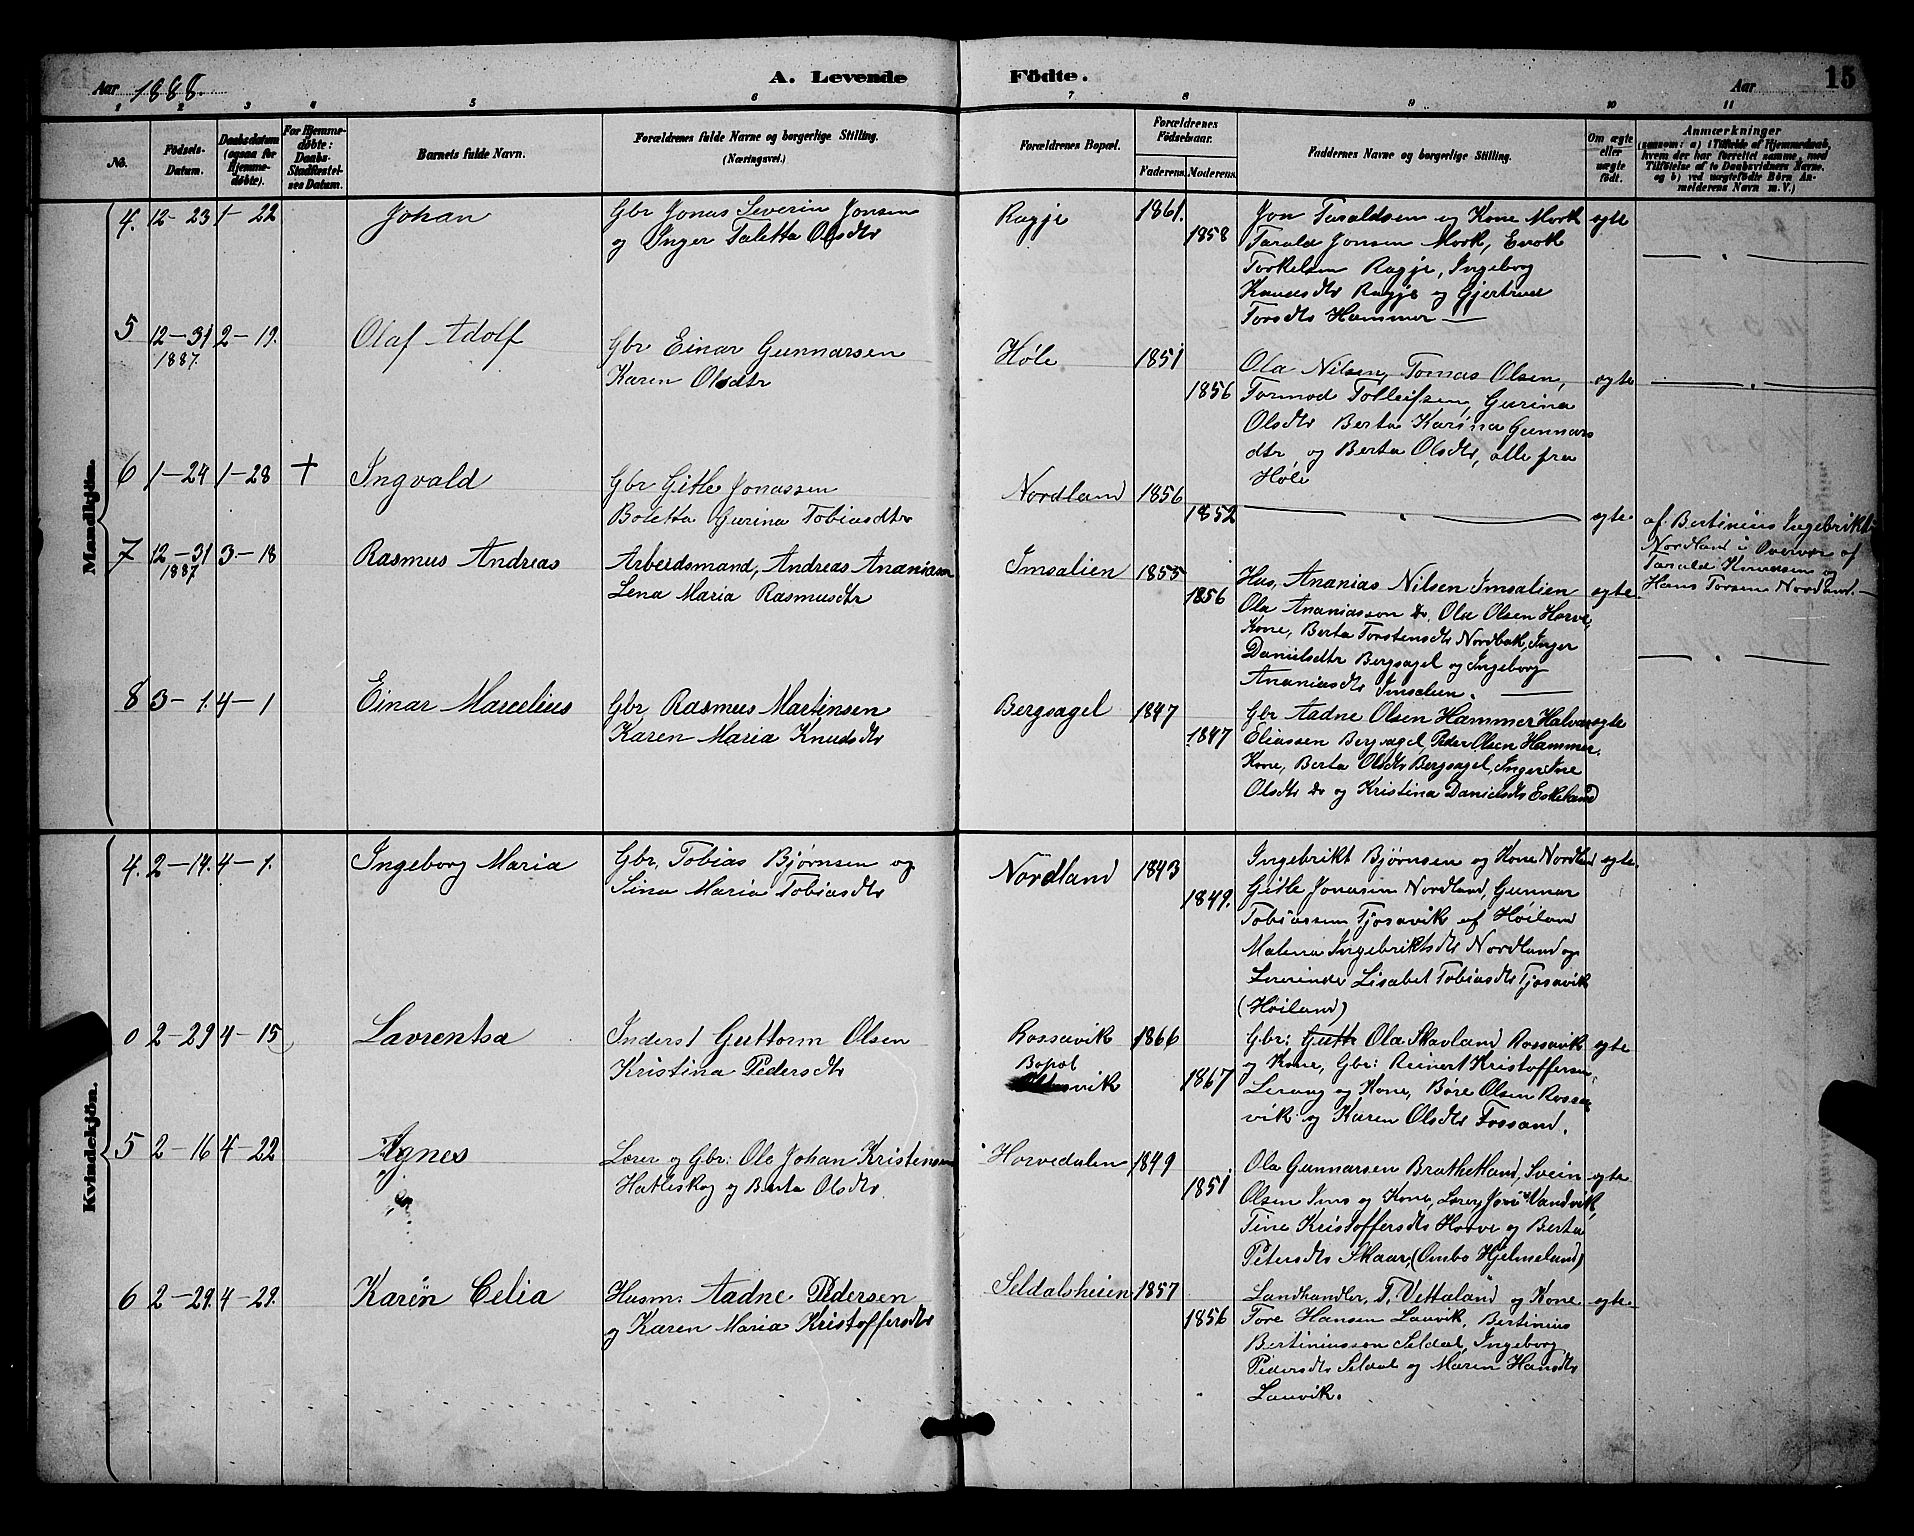 Aar 1888.
A. Levende Födte.
Aar
15
1 2 3 4 5 6 7 8 9 10 11
No.
Födsels-
Datum.
Daabsdatum
(ogsaa for
Hjemme-
döbte).
For Hjemme-
döbte:
Daabs-
Stadfæstel-
ses Datum.
Barnets fulde Navn.
Forældrenes fulde Navne og borgerlige Stilling.
(Næringsvei.)
Forældrenes Bopæl.
Forældrenes
Födselsaar.
Faderens. Moderens.
Faddernes Navne og borgerlige Stilling.
Om ægte
eller
uægte
födt.
Anmærkninger
(saasom: a) i Tilfælde af Hjemmedaab,
hvem der har forrettet samme, med
Tilföielse af to Daabsvidners Navne,
og b) ved uægtefödte Börn An-
melderens Navn m. V.)
Mandkjön.
4. 12-23 1-22 Johan
Gbr Jonas Severin Jonsen
og Inger Taletta Olsdtr
Ragje 1861. 1858
Jon Taraldsen og Kone Mork
Tarald Jonsen Mork, Enok
Torkelsen Ragje, Ingeborg
Knudsdtr Ragje og Gjertrud
Torsdtr Hammer —
egte
5 12-31 2-19. Olaf Adolf
1887.
Gbr Einar Gunnarsen
Karen Olsdtr
Høle 1851 1856
Ola Nilsen, Tomas Olsen,
Tormod Tolleifsen, Gurina
Olsdtr Berta Karina Gunnars
dtr og Berta Olsdtr, alle fra
Høle
egte
6 1-24 1-28 + Ingvald
Gbr Gitle Jonassen
Boletta Gurina Tobiasdtr
Nordland 1856 1852
egte
af Bertinius Ingebrikts
Nordland i Overvær af
Tarald Knudsen og
Hans Torsen Nordland.
7 12-31 3-18 Rasmus Andreas
1887
Arbeidsmand, Andreas Ananiassen
Lena Maria Rasmusdtr
Imsalien 1855 1856
Hus, Ananias Nilsen Imsalien
Ola Ananiasson do. Ola Olsen Horve,
Kone, Berta Torstensdtr Nordbøk, Inger
Danielsdtr Bergsagel og Ingeborg
Ananiasdtr Imsalien.
egte.
8 3-1. 4-1 Einar Marcelius
Gbr Rasmus Martinsen
Karen Maria Knudsdtr
Bergsagel 1847 1847
Gbr Aadne Olsen Hammer Halvor
Eliassen Bergsagel, Peder Olsen Hammer.
Kone, Berta Olsdtr Bergsagel, Inger Ine
Olsdtr do og Kristina Danielsdtr Eskeland
egte
Kvindekjön.
4. 2-14. 4-1. Ingeborg Maria
Gbr. Tobias Bjørnsen og
Sina Maria Tobiasdtr
Nordland 1843 1849.
Ingebrikt Bjørnsen og Kone Nordland
Gitle Jonasen Nordland, Gunnar
Tobiassen Tjosavik af Høiland
Malena Ingebriktsdtr Nordland og
Lærerinde Lisabet Tobiasdtr Tjosavik
(Høiland)
egte.
0 2-29 4-15 Lavrentsa
Inderst Guttorm Olsen
Kristina Pedersdtr
Rossavik
Bopæl
1866 1867
Gbr: Gutt Ola Skavland Rossavik
og Kone, Gbr: Reinert Kristoffersen,
Lerang og Kone, Børe Olsen Rossa
vik og Karen Olsdtr Fossand.
egte
5 2-16 4-22 Agnes
Lærer og Gbr: Ole Johan Kristensen
Hatleskog og Berta Olsdtr.
Horvedalen 1849 1851
Ola Gunnarsen Brathetland, Svein
Olsen Ims og Kone, Lærer, Joni Vandvik,
Tine Kristoffersdtr Horve og Berta
Petersdtr Skaar, (Ombo Hjelmeland)
egte
6 2-29. 4-29. Karin Celia
Husm. Aadne Pedersen
og Karen Maria Kristoffersdtr
Seldalsheien 1857 1856
Landhandler, T. Vettaland og Kone
Tore Hansen Lauvik, Bertinius
Bertiniusson Seldal, Ingeborg
Pedersdtr Seldal og Maren Hansdtr
Lauvik.
egte